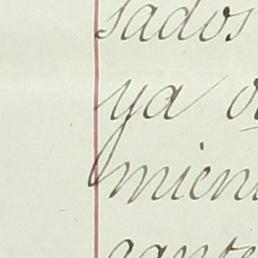 sados
ya
mien
gante